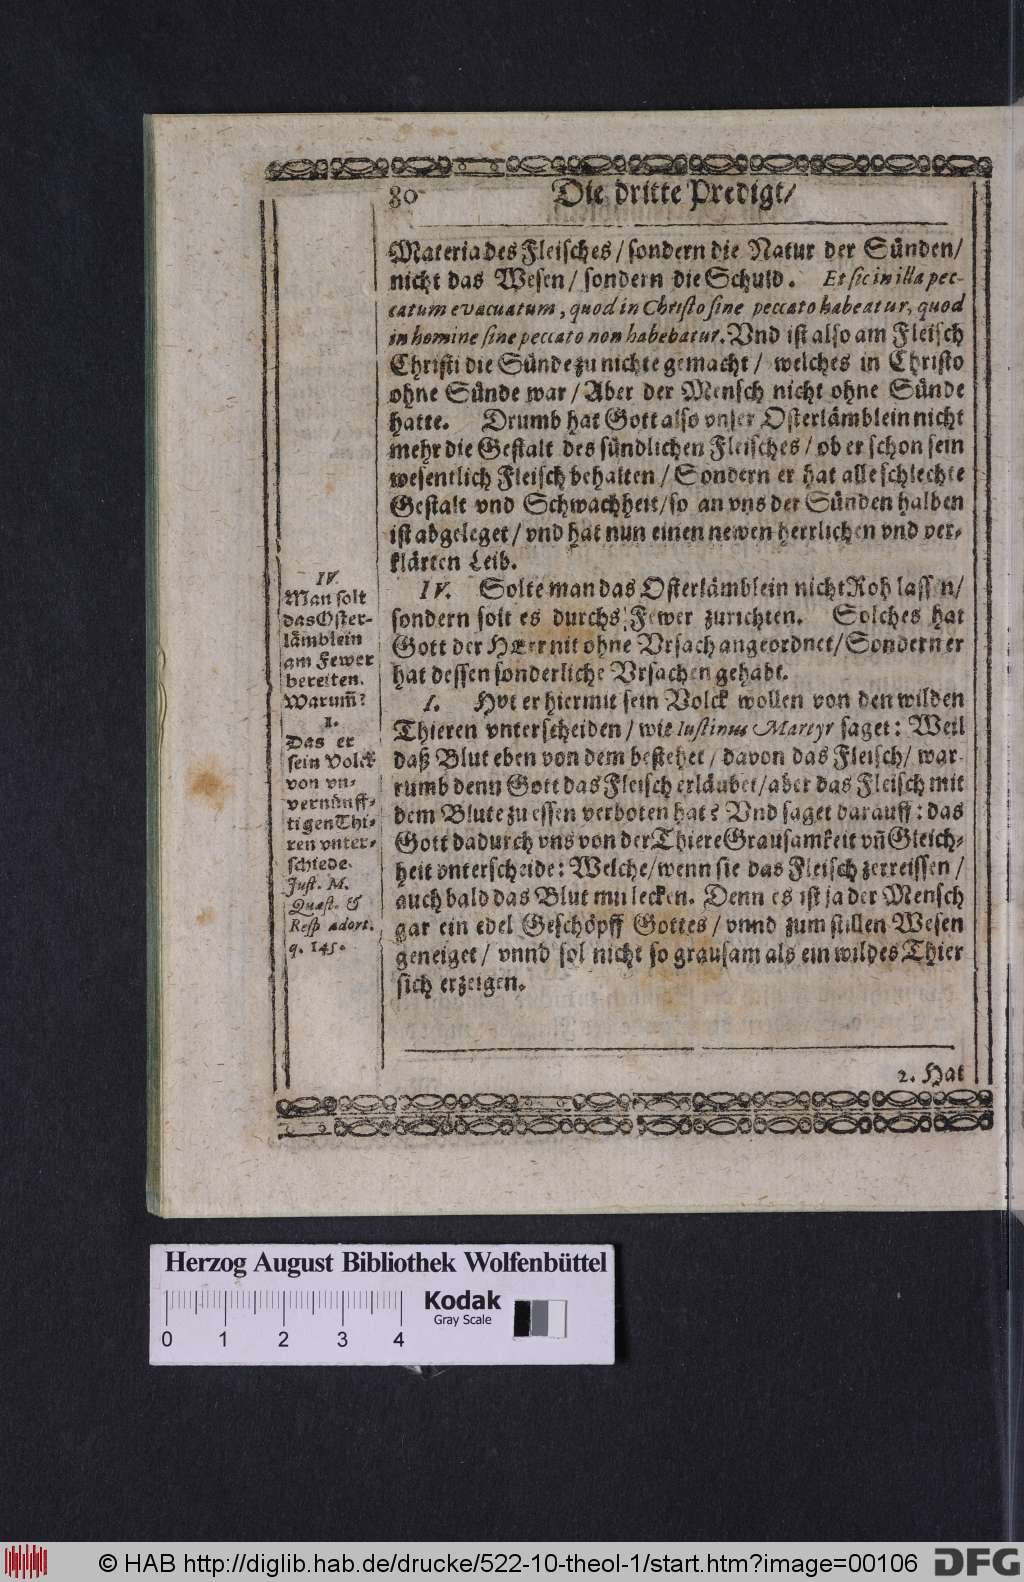 80 Die dritte Predigt/
Materia des Fleisches/ sondern die Natur der Sünden/
nicht das Wesen/ sondern die Schuld. Et sic in illa pec-
catum evacuatum, quod in Christo sine peccato habeatur, quod
in homine sine peccato non habebatur. Vnd ist also am Fleisch
Christi die Sünde zu nichte gemacht/ welches in Christo
ohne Sünde war/ Aber der Mensch nicht ohne Sünde
hatte. Drumb hat Gott also vnser Osterlämblein nicht
mehr die Gestalt des sündlichen Fleisches/ ob er schon sein
wesentlich Fleisch behalten/ Sondern er hat alle schlechte
Gestalt vnd Schwachheit/ so an vns der Sünden halben
ist abgeleget/ vnd hat nun einen newen herrlichen vnd ver-
klärten Leib.
IV. Solte man das Osterlämblein nicht Roh lassen/
sondern solt es durchs Fewer zurichten. Solches hat
Gott der HErr nit ohne Vrsach angeordnet/ Sondern er
hat dessen sonderliche Vrsachen gehabt.
1. Hat er hiermit sein Volck wollen von den wilden
Thieren vnterscheiden/ wie Iustinus Martyr saget: Weil
daß Blut eben von dem bestehet/ davon das Fleisch/ war-
rumb denn Gott das Fleisch erläubet/ aber das Fleisch mit
dem Blute zu essen verboten hat? Vnd saget darauff: das
Gott dadurch vns von der Thiere Grausamkeit vñ Gleich-
heit vnterscheide: Welche/ wenn sie das Fleisch zerreissen/
auch bald das Blut mit lecken. Denn es ist ja der Mensch
gar ein edel Geschöpff Gottes/ vnnd zum stillen Wesen
geneiget/ vnnd sol nicht so grausam als ein wildes Thier
sich erzeigen.
2. Hat
IV.
Man solt
das Oster-
lämblein
am Fewer
bereiten.
Warum̃?
1.
Das er
sein Volck
von vn-
vernünff-
tigen Thi-
ren vnter-
schiede.
Just. M.
Quæst. &
Resp adort.
q. 145.
Herzog August Bibliothek Wolfenbüttel
Kodak
Gray Scale
0 1 2 3 4
© HAB http://diglib.hab.de/drucke/522-10-theol-1/start.htm?image=00106
DFG